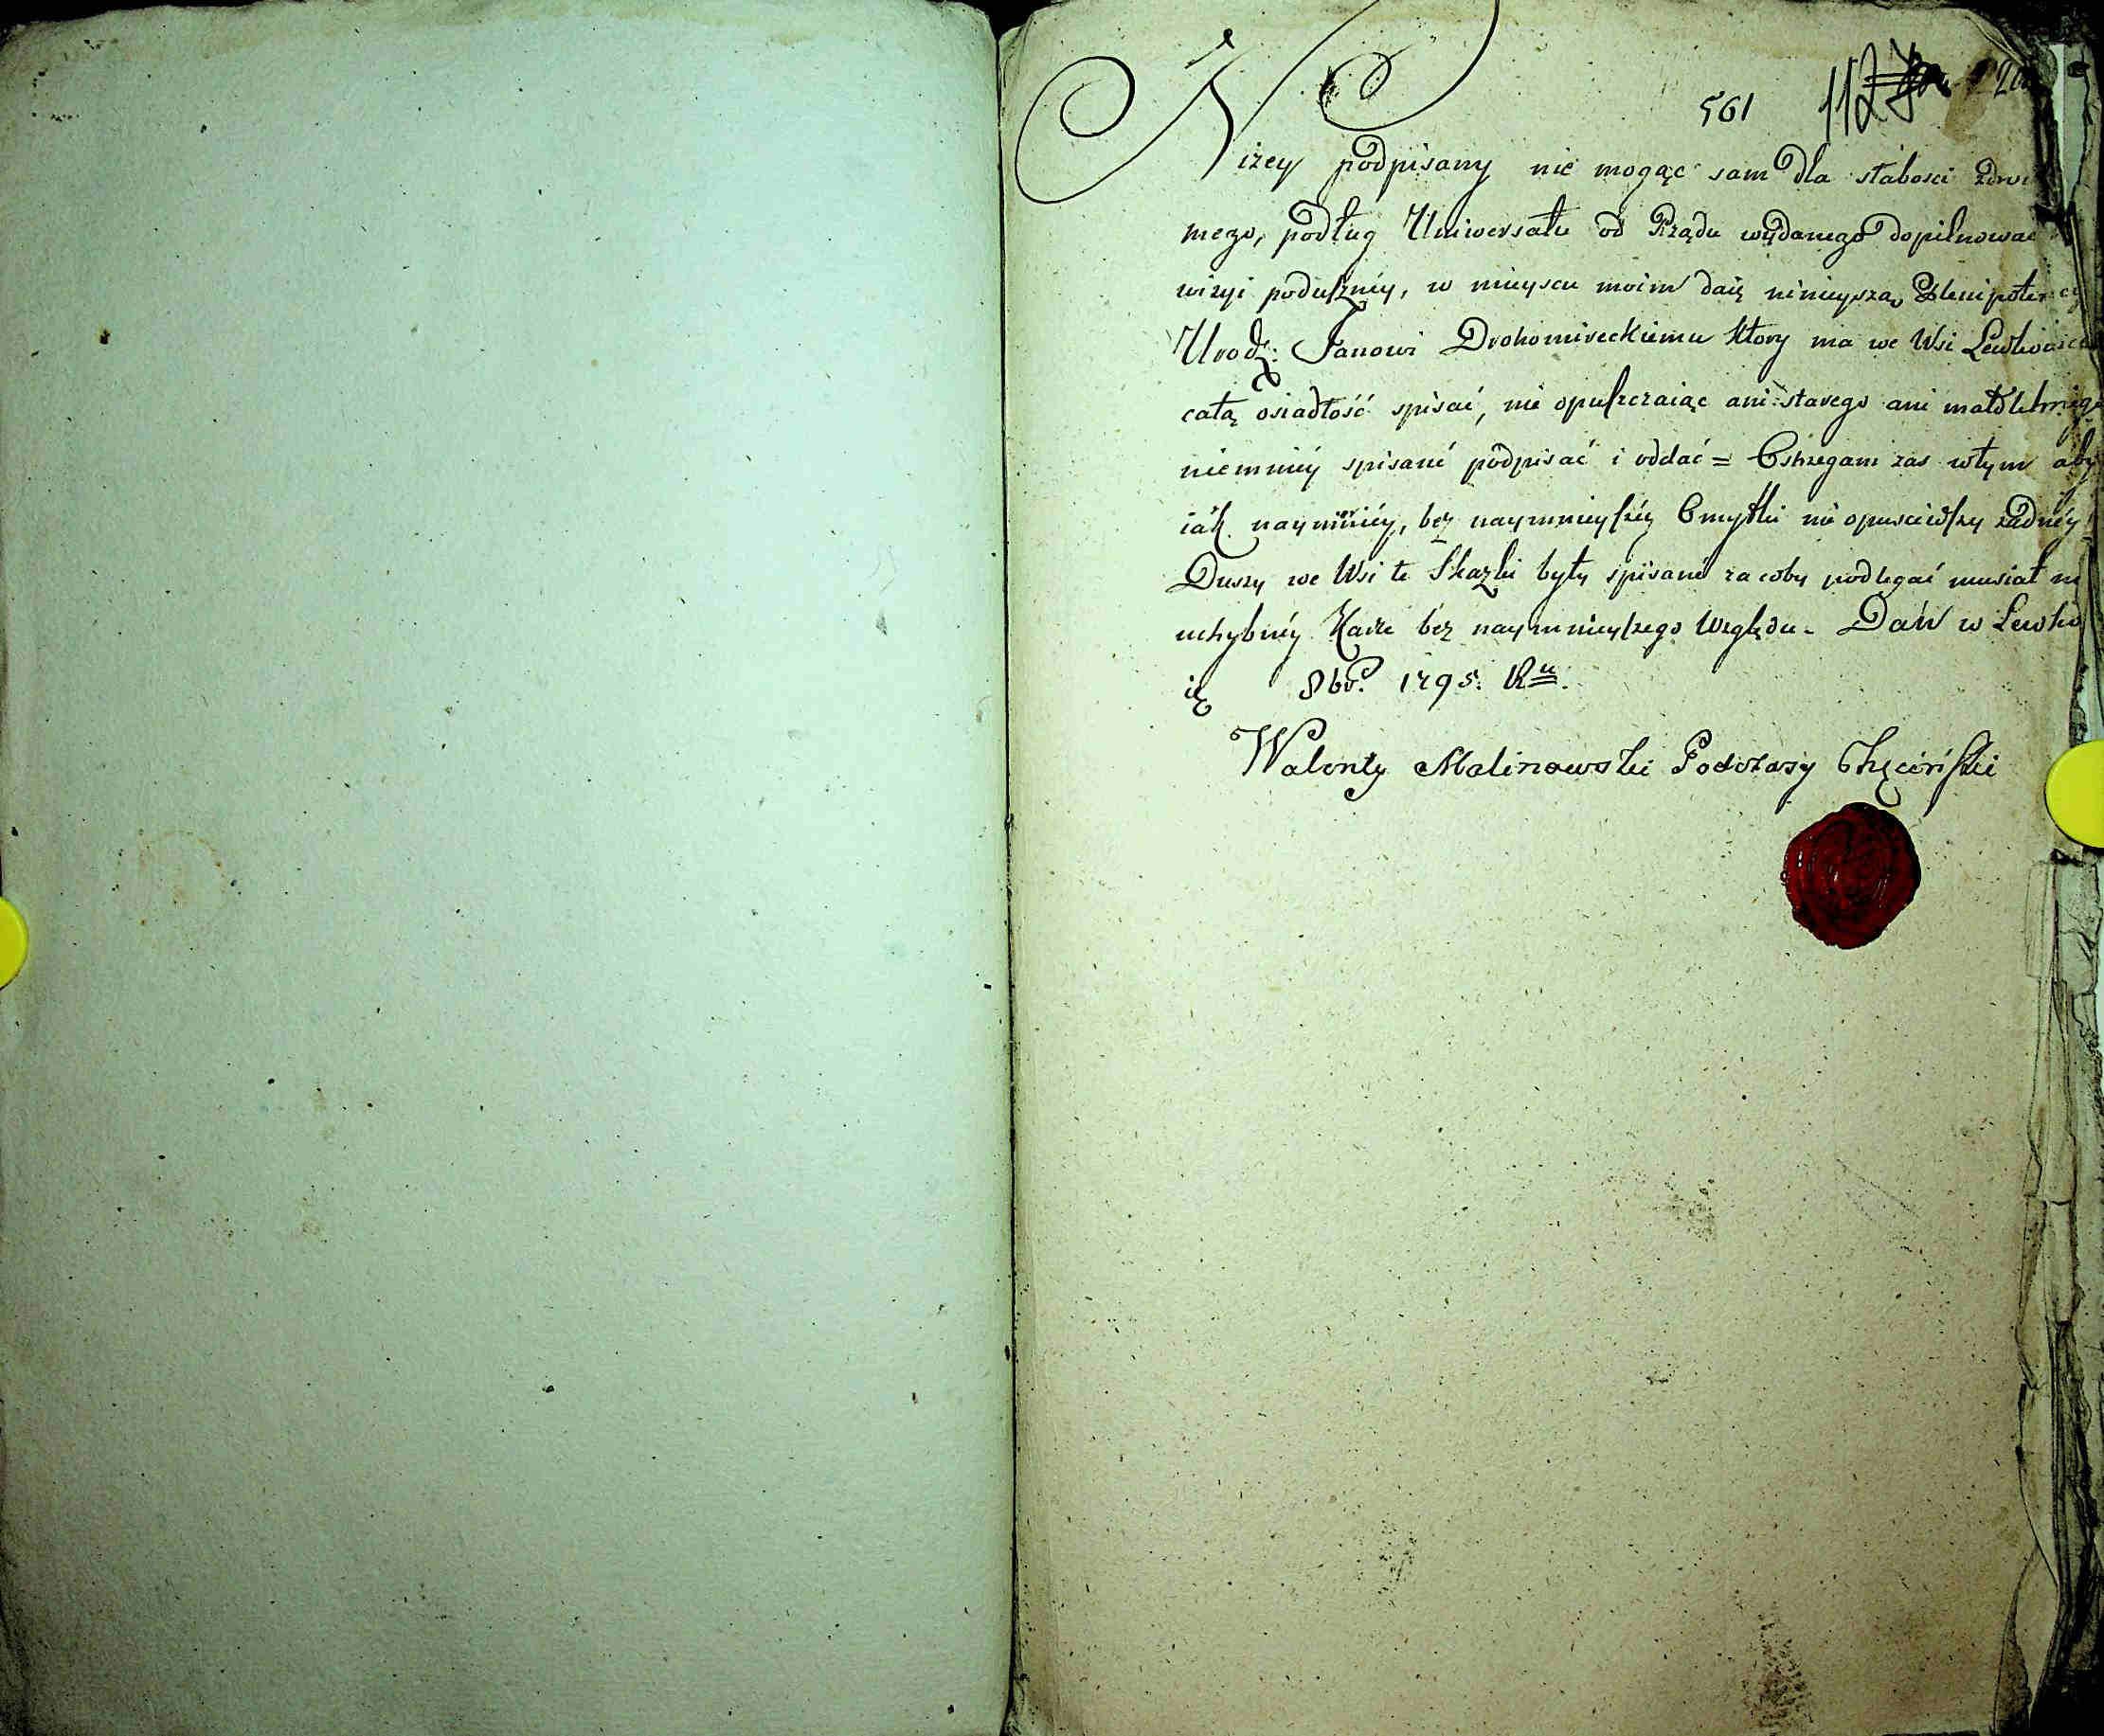 561 112
Niżey podpisany nie mogąc sam dla słabosci
mego, podług Uniwersału od Rządu wydanego dopilnować
wizyi podusznéy, w mieyscu moim daię ninieyszą Plenipotencyą
Urodz: Janowi Drohomireckiemu ktory ma we Wsi
całą osiadłość spisać, nie opuszczaiąc ani starego ani małoletniego
niemniéy spisané podpisać i oddać = Ostrzegam zas wtym aby
iak naymniéy, bez naymnieyszéy Omyłki nie opusciwszy żadnéy
Duszy we Wsi te Skazki były spisane za coby podlegać musiał nie
uchybnéy Karze bez naymnieyszego Względu. Dań w Lewko
ię 8br. 1795. Ru.
Walenty Malinowski Podczaszy Chęciński